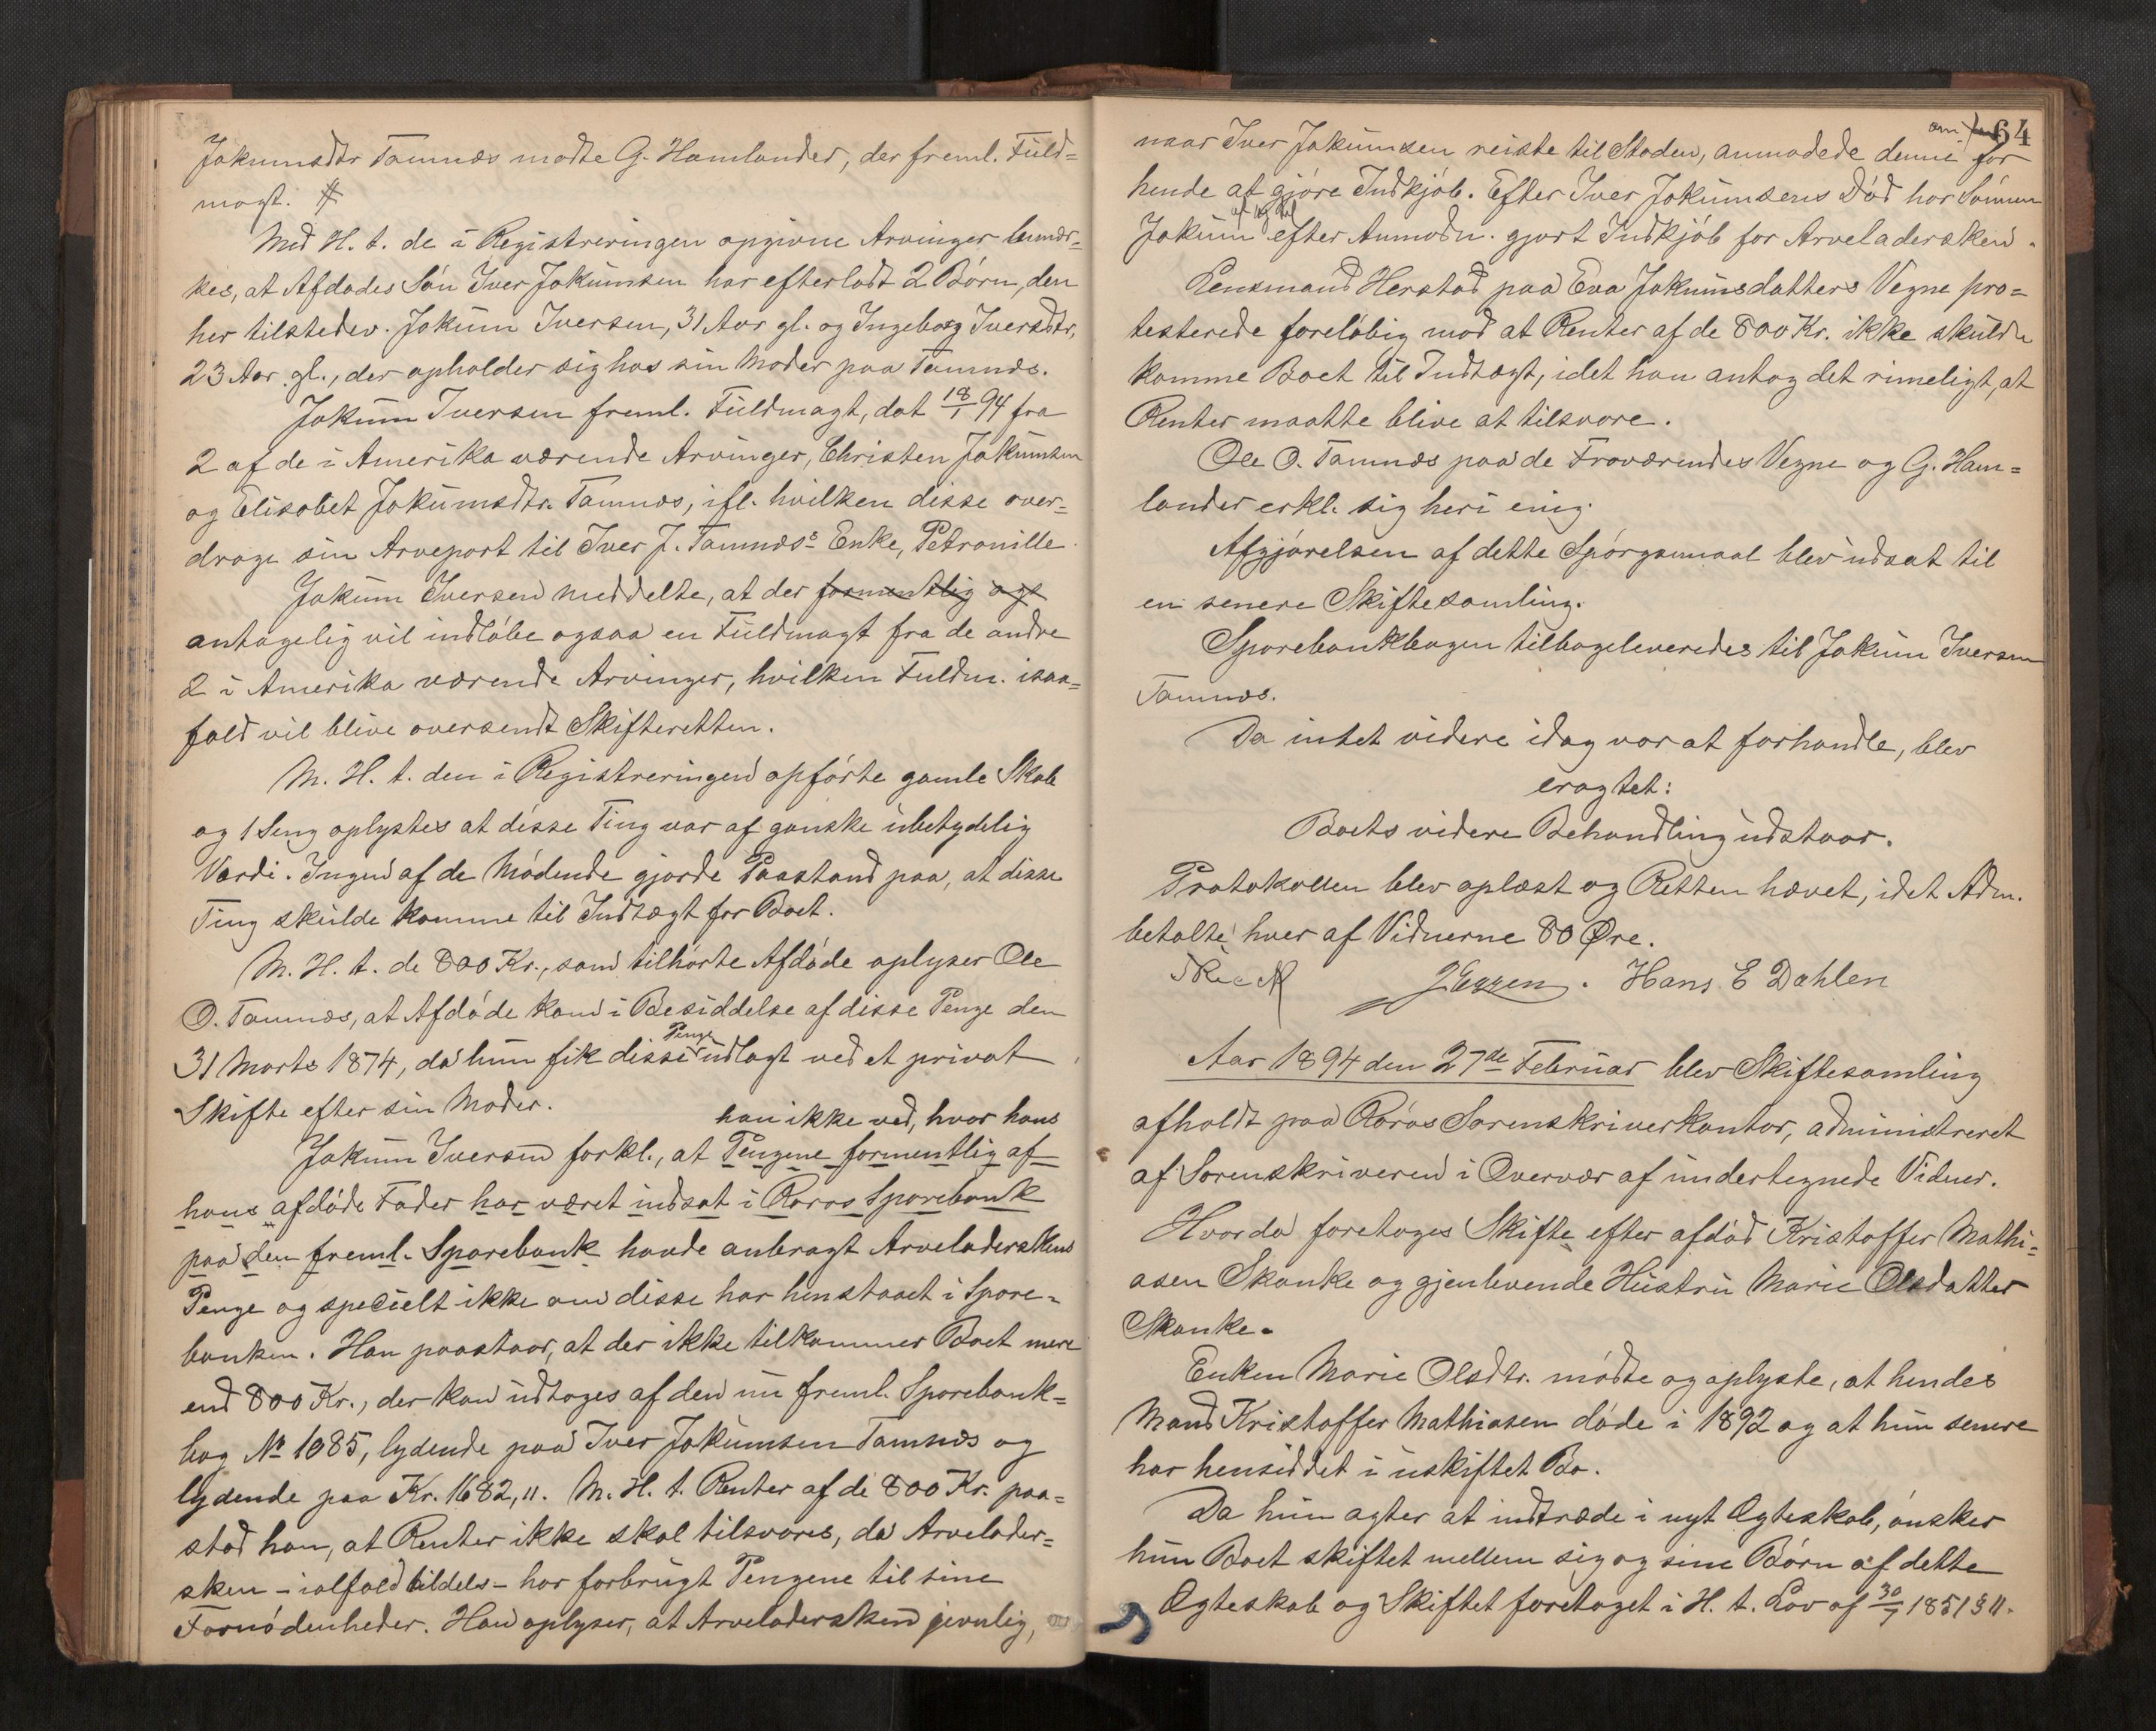 Jokumsdtr Tamnæs mødte G. Hamlander, der freml. Fuld=
magt. #
Med H. t. de i Registreringen opgivne Arvinger bemær=
kes, at Afdødes Søn Iver Jokumsen har efterladt 2 Børn, den
her tilstedev. Jokum Iversen, 31 Aar gl. og Ingeborg Iversdtr,
23 Aar gl., der opholder sig hos sin Moder paa Tamnæs.
Jokum Iversen freml. Fuldmagt, dat 18/1 94 fra
2 af de i Amerika værende Arvinger, Christen Jokumsen
og Elisabet Jokumsdtr. Tamnæs, ifl. hvilken disse over=
drage sin Arvepart til Iver J. Tamnæs's Enke, Petronille
Jokum Iversen meddelte, at der formentlig ogs
antagelig vil indløbe ogsaa en Fuldmagt fra de andre
2 i Amerika værende Arvinger, hvilken Fuldm. isaa=
fald vil blive oversendt Skifteretten.
M. H. t. den i Registreringen opførte gamle Skab
og 1 Seng oplystes at disse Ting var af ganske ubetydelig
Værdi. Ingen af de Mødende gjorde Paastand paa, at disse
Ting skulde komme til Indtægt for Boet.
M. H. t. de 800 Kr., som tilhørte Afdøde oplyser Ole
O. Tamnæs, at Afdøde kom i Besiddelse af disse Penge den
31 Marts 1874, da hun fik disse Penge udlagt ved et privat
Skifte efter sin Moder.
han ikke ved, hvor hans
Jokum Iversen forkl., at Pengene formentlig af
hans afdøde Fader har været indsat i Røros Sparebank
paa den freml. Sparebank havde anbragt Arveladerskens
Penge og specielt ikke om disse har henstaaet i Spare=
banken. Han paastaar, at der ikke tilkommer Boet mere
end 800 Kr., der kan udtages af den nu freml. Sparebank=
bog No 1085, lydende paa Iver Jokumsen Tamnæs og
lydende paa Kr. 1682,11. M. H. t. Renter af de 800 Kr. paa=
stod han, at Renter ikke skal tilsvares, da Arvelader=
sken - ialfald tildels - har forbrugt Pengene til sine
Fornødenheder. Han oplyser, at Arveladersken jevnlig,
64
naar Iver Jokumsen reiste til Staden, anmodede denne om for
hende at gjøre Indkjøb. Efter Iver Jokumsens Død har Sønnen
Jokum af og til efter Anmodn. gjort Indkjøb for Arveladersken.
Lensmand Herstad paa Eva Jokumsdatters Vegne pro=
testerede foreløbig mod at Renter af de 800 Kr. ikke skulde
komme Boet til Indtægt, idet han antog det rimeligt, at
Renter maatte blive at tilsvare.
Ole O. Tamnæs paa de Fraværendes Vegne og G. Ham=
lander erkl. sig heri enig.
Afgjørelsen af dette Spørgsmaal blev udsat til
en senere Skiftesamling.
Sparebankbogen tilbageleveredes til Jokum Iversen
Tamnæs.
Da intet videre idag var at forhandle, blev
eragtet:
Boets videre Behandling udstaar.
Protokollen blev oplæst og Retten hævet, idet Adm.
betalte hver af Vidnerne 80 Øre.
Hans E Dahlen
Aar 1894 den 27de Februar blev Skiftesamling
afholdt paa Røros Sorenskriverkontor, administreret
af Sorenskriveren i Overvær af undertegnede Vidner.
Hvorda foretoges Skifte efter afdød Kristoffer Mathi=
asen Skanke og gjenlevende Hustru Marie Olsdatter
Skanke.
Enken Marie Olsdtr. mødte og oplyste, at hendes
Mand Kristoffer Mathiasen døde i 1892 og at hun senere
har hensiddet i uskiftet Bo.
Da hun agter at indtræde i nyt Ægteskab, ønsker
hun Boet skiftet mellem sig og sine Børn af dette
Ægteskab og Skiftet foretaget i H. t. Lov af 30/7 1851 § 11.